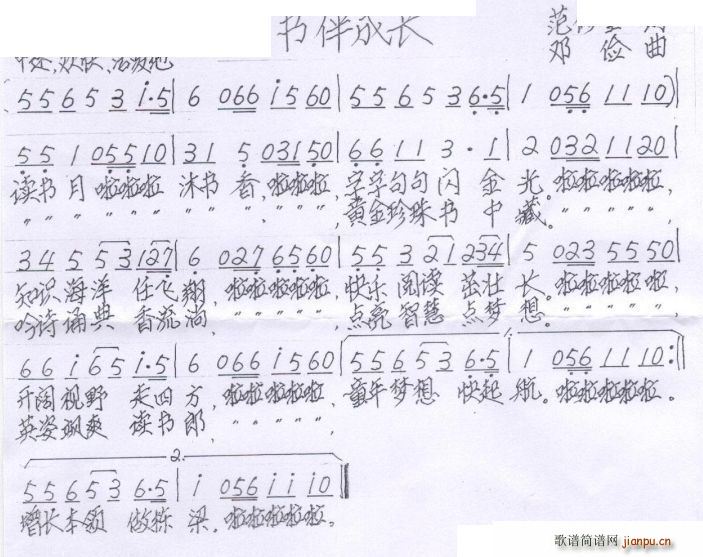 书伴成长
邓俭曲
中速,欢快、活泼地
(5 5 6 5 3 i·5 | 6 066 i560 | 5 5 6 5 3 6·5 | 1 056 11 10)
5 5 1 05510 | 31 5 03150 | 6 6 1 1 3 · 1 | 2 0321120 |
读书月啦啦啦 沐书香,啦啦啦,字字句句闪金光。啦啦啦啦啦,
〃 〃 〃 〃 〃 〃 〃 〃 〃 〃 〃 〃,黄金珍珠书中藏。〃 〃 〃 〃 〃,
3 4 5 53 127 | 6 0276560 | 5 5 3 21 234 | 5 023 5550 |
知识海洋任飞翔,啦啦啦啦啦,快乐阅读茁壮长。啦啦啦啦啦,
吟诗诵典香流淌,〃 〃 〃 〃 〃,点亮智慧点梦想。〃 〃 〃 〃 〃,
6 6 i 65 i·5 | 6 066 i560 | 5 5 6 53 6·5 | 1 056 11 10 :||
开阔视野走四方,啦啦啦啦啦,童年梦想快起航。啦啦啦啦啦。
英姿飒爽读书郎,〃 〃 〃 〃 〃,
2.
5 5 6 53 6·5 | i 056 i i i0 ||
增长本领做栋梁,啦啦啦啦啦。
歌谱简谱网 jianpu.cn